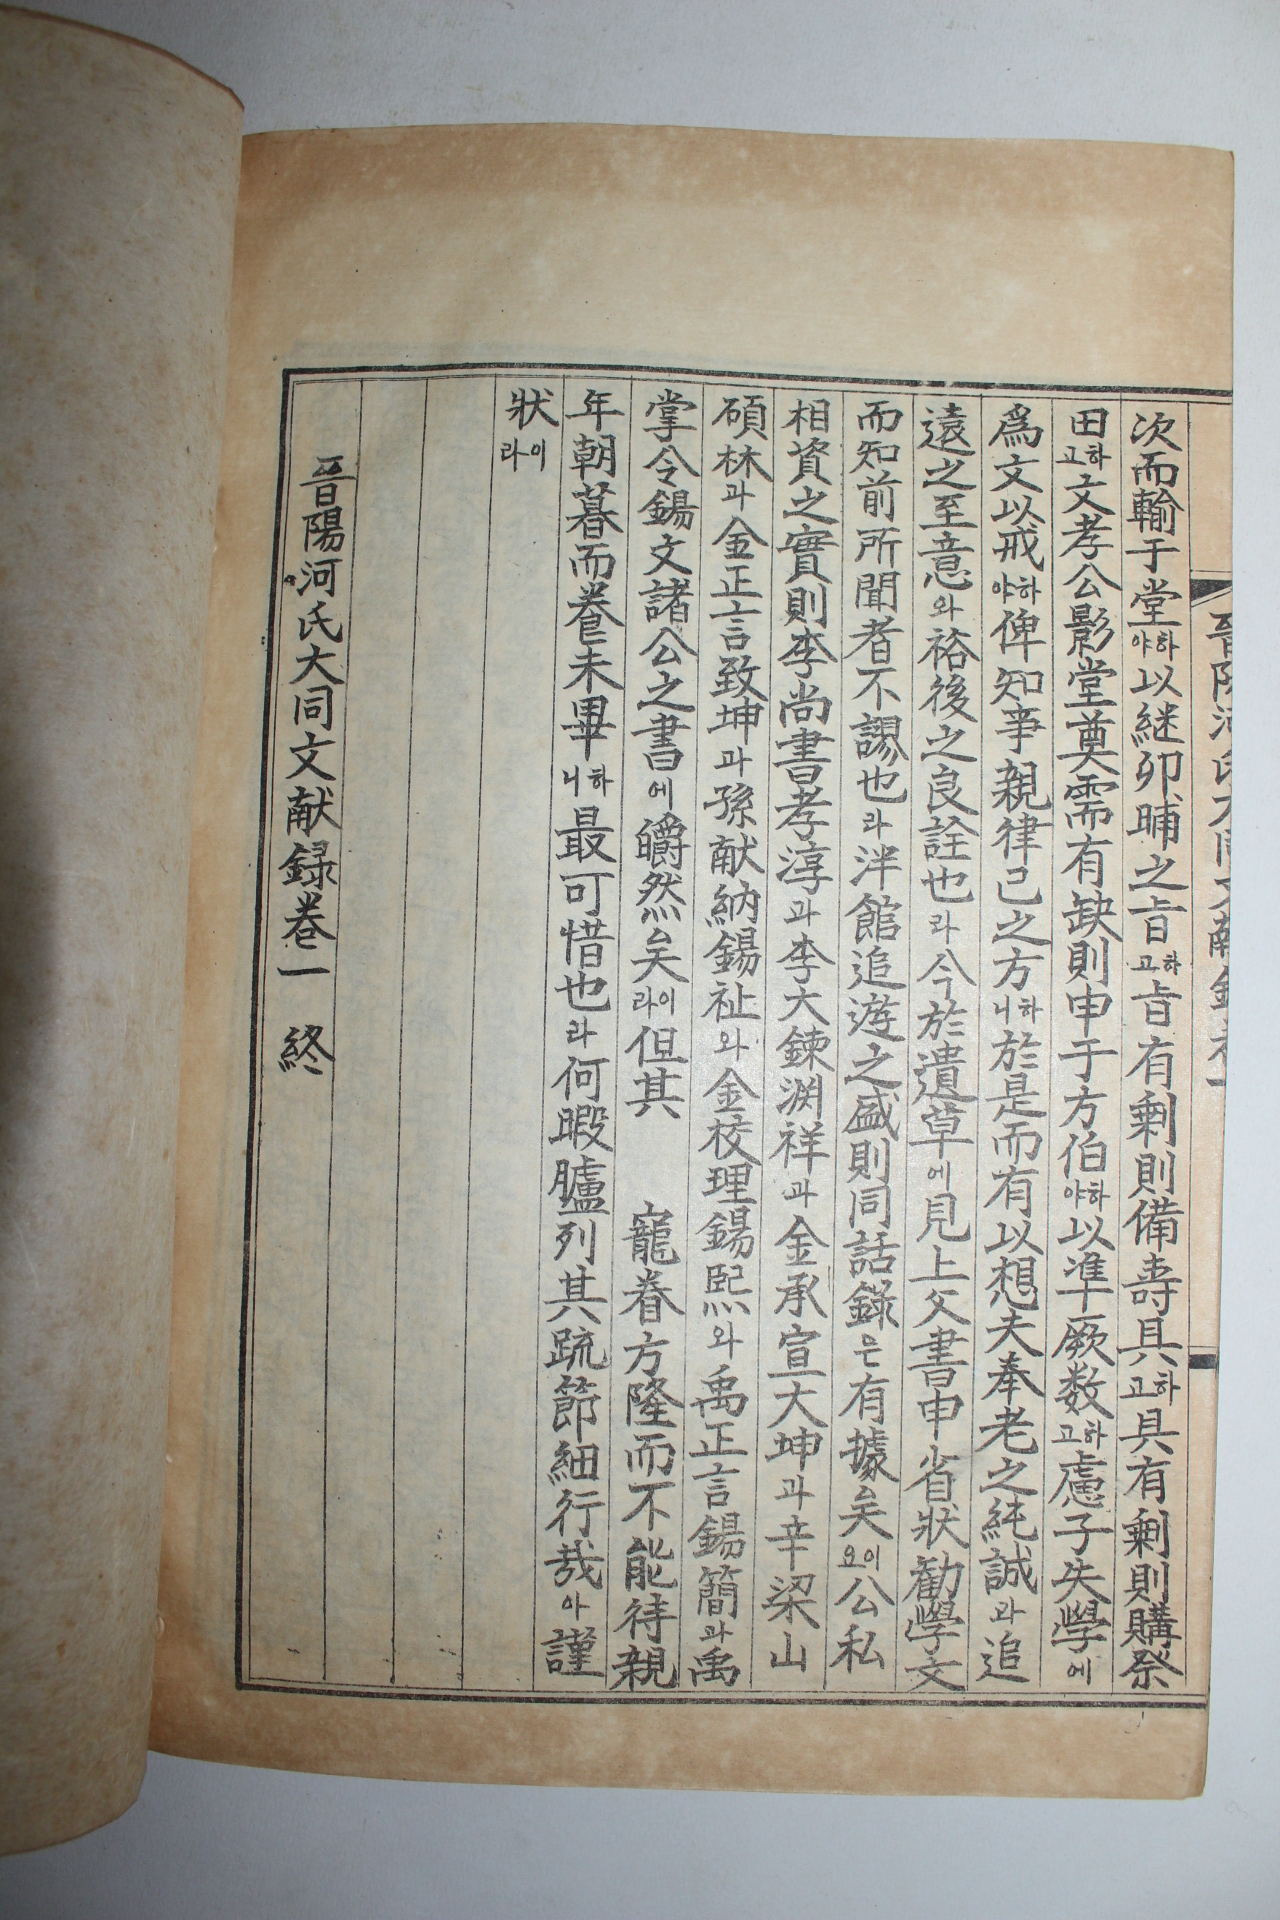 晋陽河氏大同文献錄卷一
次而輸于堂하야以継卯晡之旨하고旨有剩則備壽具하고具有剩則購祭
田하고文孝公影堂奠需有缺則申于方伯하야以準厥数하고慮子失學에
爲文以戒하야俾知事親律己之方하니於是而有以想夫奉老之純誠과追
遠之至意와裕後之良詮也라今於遺草에見上父書申省狀勸學文
而知前所聞者不謁也라泮館追遊之盛則同話錄은有據矣이요公私
相資之實則李尚書孝淳과李大鍊渊祥과金承宣大坤과辛梁山
碩林과金正言致坤과孫献納錫祉와金校理錫熙와禹正言錫簡과禹
掌令錫文諸公之書에皭然矣이라但其 寵眷方隆而不能待親
年朝暮而養未畢하니最可惜也라何暇臚列其疏節細行哉아謹
狀이라
晋陽河氏大同文献録卷一 終